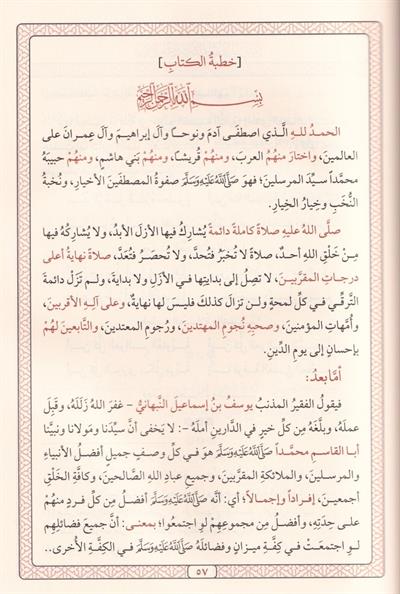 [ خطبةُ الكتابِ ]
بِسْمِ اللَّهِ الرَّحْمَنِ الرَّحِيمِ
الحمدُ للهِ الَّذي اصطفَى آدمَ ونوحـًا وآلَ إبراهيـمَ وآلَ عِمرانَ على
العالمينَ، واختارَ منهُمُ العربَ، ومنهُمْ قُريشـًا، ومنهُمْ بَني هاشمٍ، ومنهُمْ حبيبَهُ
محمَّدًا سيِّدَ المرسلينَ؛ فهوَ ﷺ صفوةُ المصطفَينَ الأخيارِ، ونُخبةُ
النُّخَبِ وخِيارُ الخِيارِ.
صلَّى اللهُ عليهِ صلاةً كاملةً دائمةً يُشارِكُ فيها الأزلَ الأبدُ، ولا يُشارِكُهُ فيها
مِنْ خَلْقِ اللهِ أحدٌ، صلاةً لا تُخبَرُ فتُحدَّ، ولا تُحصَرُ فتُعَدَّ، صلاةً نهايةُ أعلى
درجاتِ المقرَّبينَ، لا تصِلُ إلى بدايتِها في الأزلِ ولا بدايةَ، ولم تَزَلْ دائمةَ
التَّرقِّي في كلِّ لمحةٍ ولن تزالَ كذلكَ فليسَ لها نهايةٌ، وعلى آلِهِ الأقربينَ،
وأُمَّهاتِ المؤمنينَ، وصحبِهِ نُجومِ المهتدينَ، ورُجومِ المعتدينَ، والتَّابعينَ لهُمْ
بإحسانٍ إلى يومِ الدِّينِ.
أمَّا بعدُ:
فيقولُ الفقيرُ المذنبُ يوسفُ بنُ إسماعيلَ النَّبهانيُّ - غفرَ اللهُ زَلَلَهُ، وقَبِلَ
عملَهُ، وبلَّغَهُ مِن كلِّ خيرٍ في الدَّارينِ أملَهُ -: لا يَخفى أنَّ سيِّدَنا ومولانا ونبيَّنا
أبا القاسمِ محمَّداً ﷺ هوَ في كلِّ وصفٍ جميلٍ أفضلُ الأنبياءِ
والمرسلينَ، والملائكةِ المقرَّبينَ، وجميعِ عبادِ اللهِ الصَّالحينَ، وكافَّةِ الخَلْقِ
أجمعينَ، إفراداً وإجمالاً؛ أي: أنَّه ﷺ أفضلُ مِن كلِّ فردٍ منهُمْ
على حِدَتِهِ، وأفضلُ مِن مجموعِهِمْ لوِ اجتمعُوا؛ بمعنى: أنَّ جميعَ فضائلِهِم
لوِ اجتمعَتْ في كِفَّةِ ميزانٍ وفضائلَهُ ﷺ في الكِفَّةِ الأُخرى..
٥٧